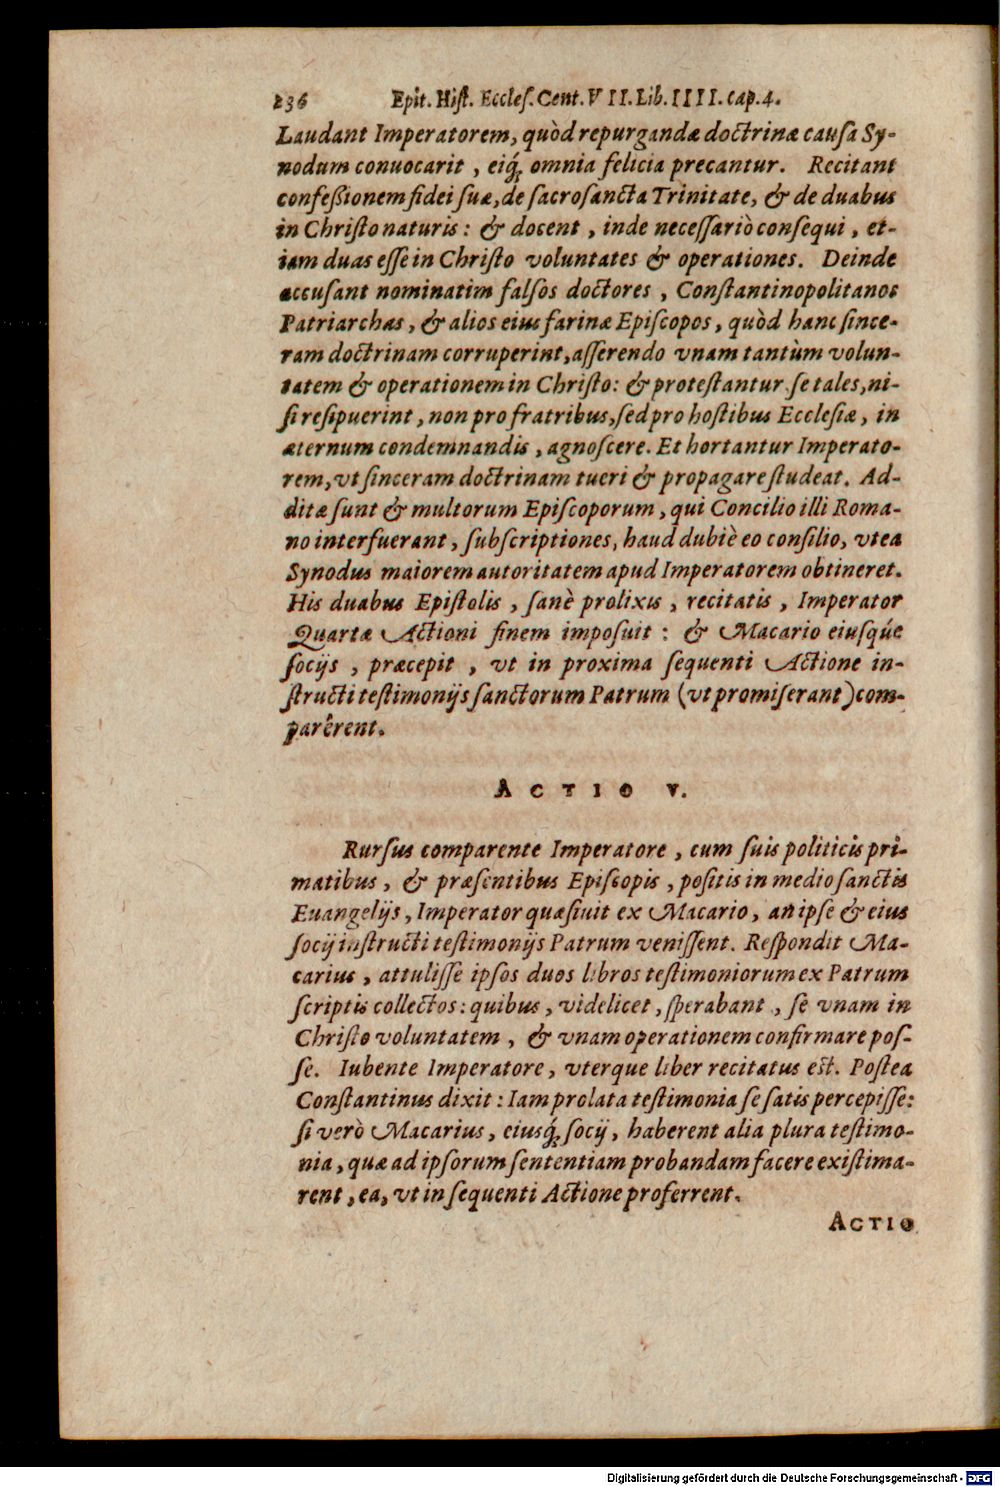 236 Epit. Hiſt. Eccleſ. Cent. VII. Lib. IIII. cap. 4.
Laudant Imperatorem, quòd repurgandæ doctrinæ cauſa Sy-
nodum conuocarit, eiq́; omnia felicia precantur. Recitant
confeßionem fidei ſuæ, de ſacroſancta Trinitate, & de duabus
in Chriſto naturis: & docent, inde neceſſariò conſequi, et-
iam duas eſſe in Chriſto voluntates & operationes. Deinde
accuſant nominatim falſos doctores, Conſtantinopolitanos
Patriarchas, & alios eius farinæ Epiſcopos, quòd hanc ſince-
ram doctrinam corruperint, aſſerendo vnam tantùm volun-
tatem & operationem in Chriſto: & proteſtantur ſe tales, ni-
ſi reſipuerint, non pro fratribus, ſed pro hoſtibus Eccleſiæ, in
æternum condemnandis, agnoſcere. Et hortantur Imperato-
rem, vt ſinceram doctrinam tueri & propagare ſtudeat. Ad-
ditæ ſunt & multorum Epiſcoporum, qui Concilio illi Roma-
no interfuerant, ſubſcriptiones, haud dubiè eo conſilio, vt ea
Synodus maiorem autoritatem apud Imperatorem obtineret.
His duabus Epiſtolis, ſanè prolixis, recitatis, Imperator
Quartæ Actioni finem impoſuit: & Macario eiusqúe
ſocijs, præcepit, vt in proxima ſequenti Actione in-
ſtructi teſtimonijs ſanctorum Patrum (vt promiſerant) com-
parêrent.
ACTIO V.
Rurſus comparente Imperatore, cum ſuis politicis pri-
matibus, & præſentibus Epiſcopis, poſitis in medio ſanctis
Euangelijs, Imperator quæſiuit ex Macario, an ipſe & eius
ſocij inſtructi teſtimonijs Patrum veniſſent. Reſpondit Ma-
carius, attuliſſe ipſos duos libros teſtimoniorum ex Patrum
ſcriptis collectos: quibus, videlicet, ſperabant, ſe vnam in
Chriſto voluntatem, & vnam operationem confirmare poſ-
ſe. Iubente Imperatore, vterque liber recitatus eſt. Poſtea
Conſtantinus dixit: Iam prolata teſtimonia ſe ſatis percepiſſe:
ſi verò Macarius, eiusq́; ſocij, haberent alia plura teſtimo-
nia, quæ ad ipſorum ſententiam probandam facere exiſtima-
rent, ea, vt in ſequenti Actione proferrent.
ACTIO
Digitalisierung gefördert durch die Deutsche Forschungsgemeinschaft - DFG